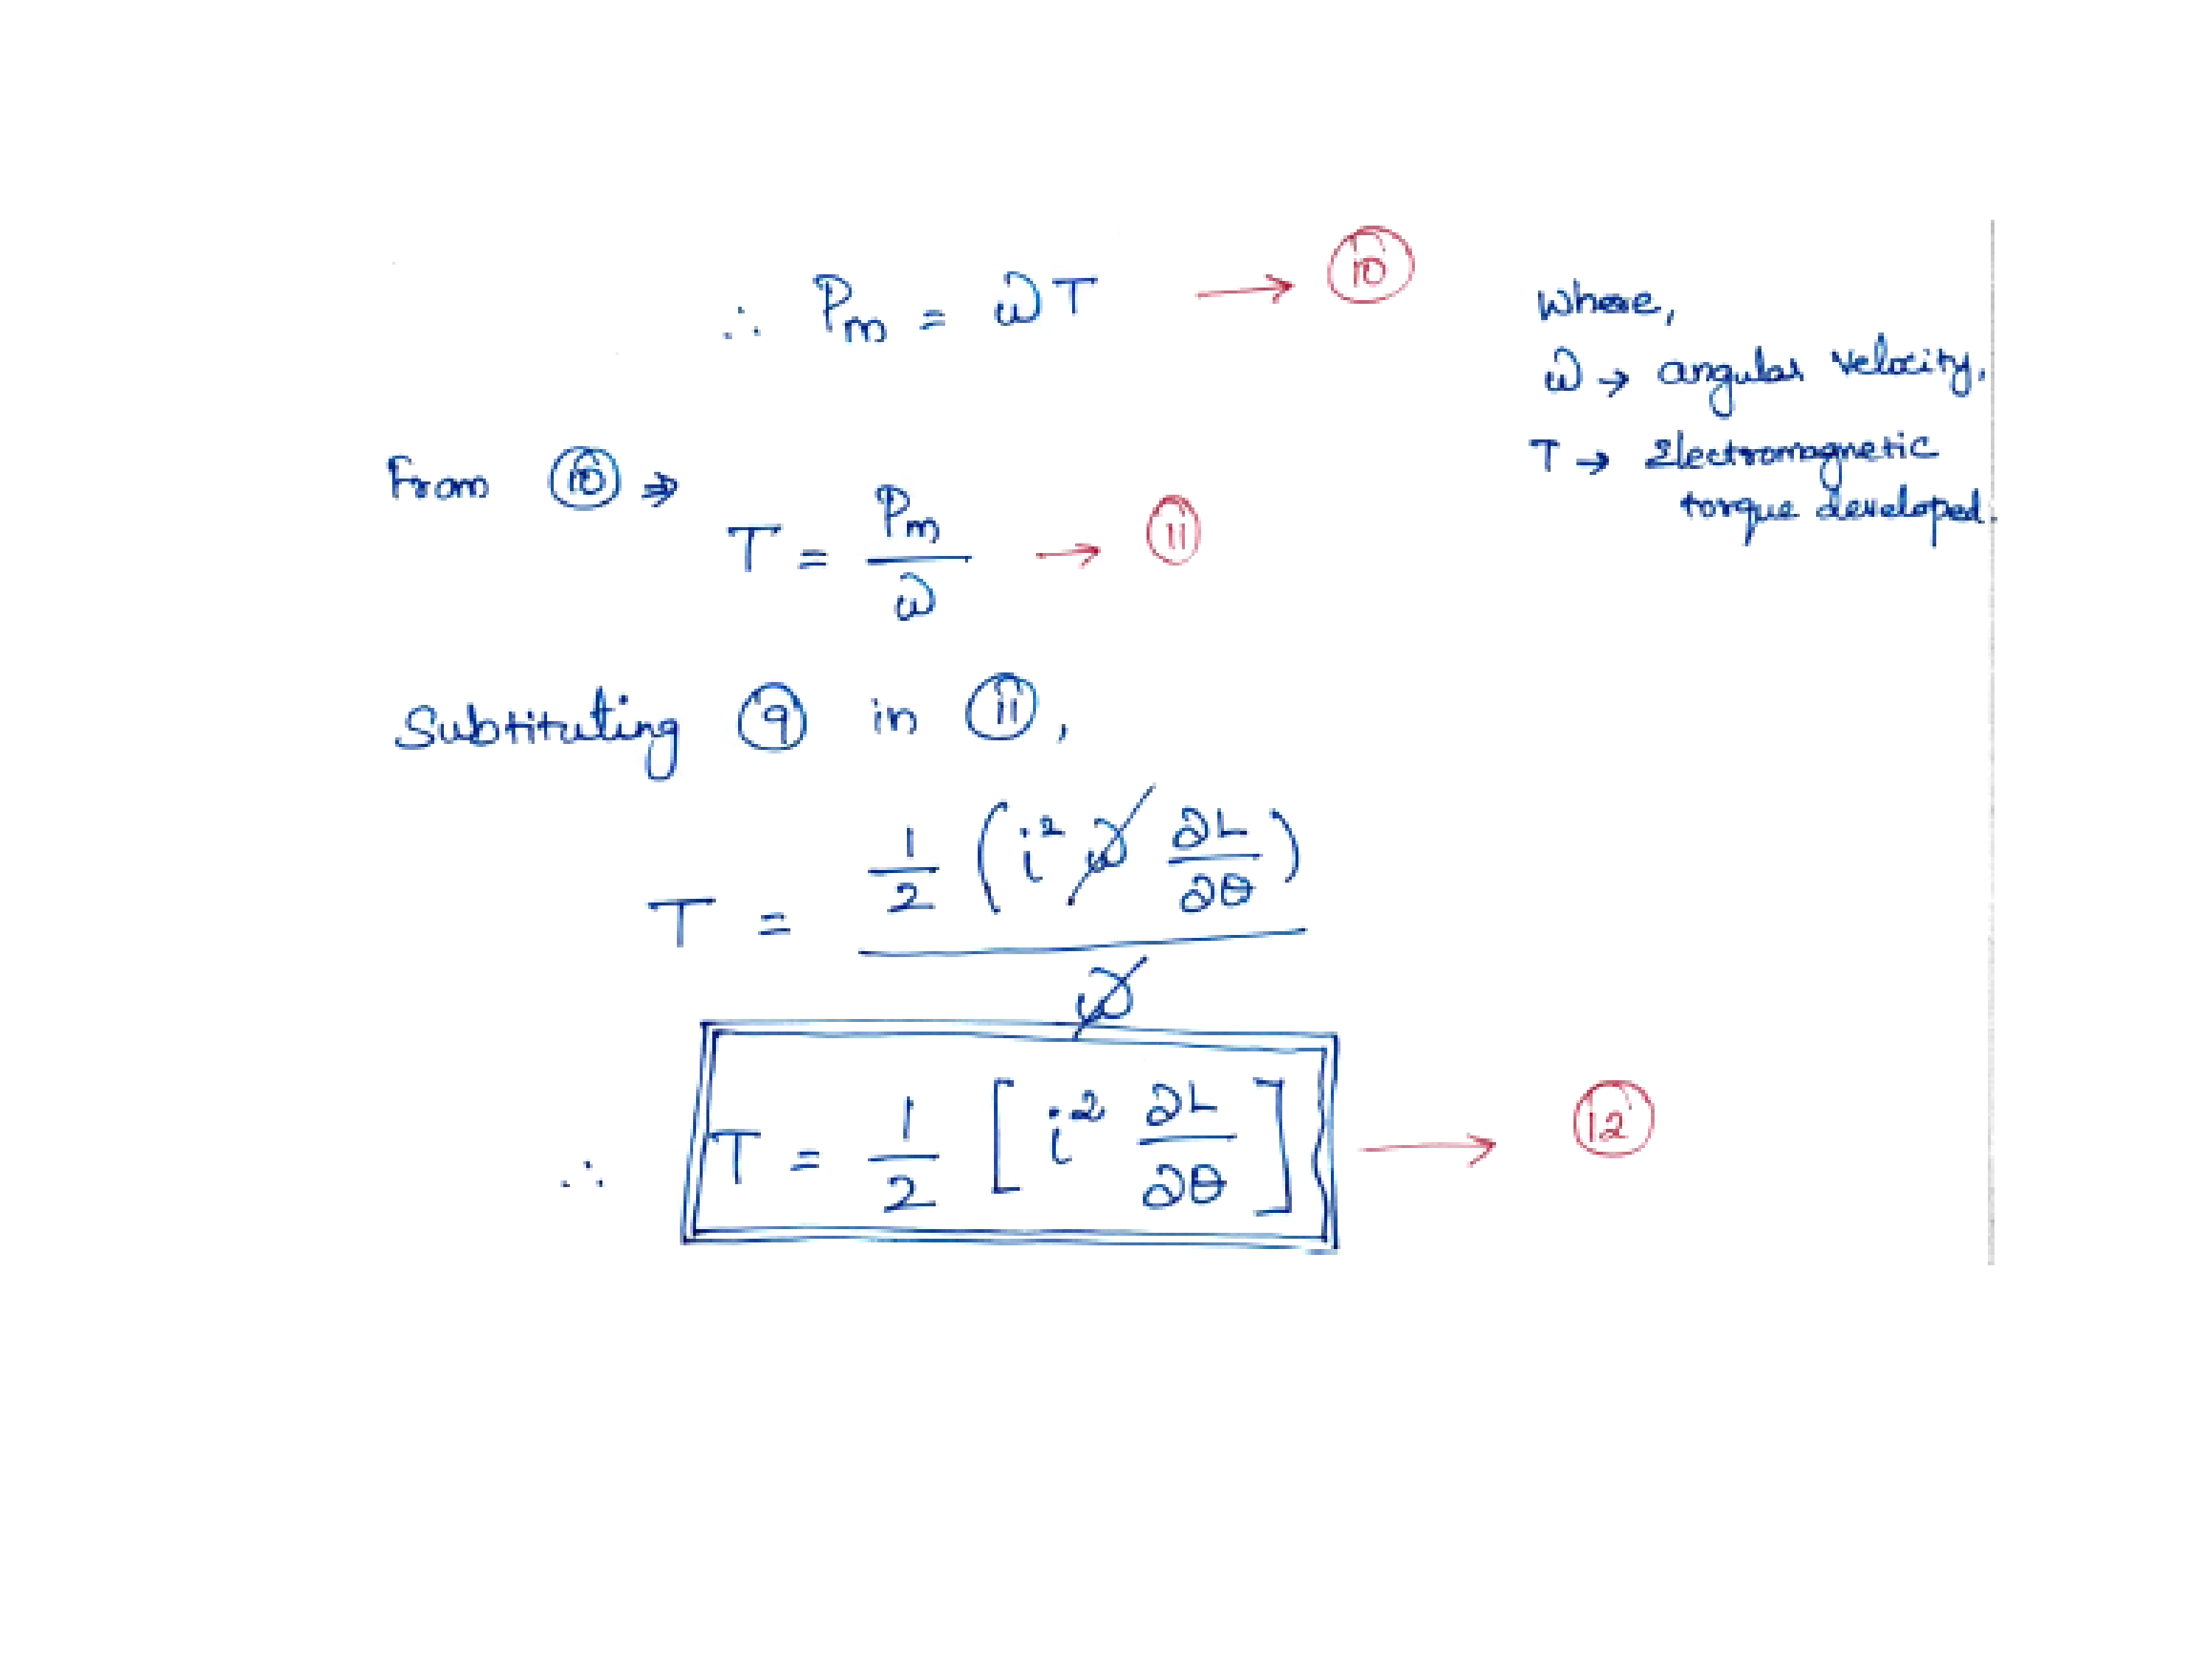 ∴ Pm = ωT → 10
Where,
ω → angular velocity,
T → Electromagnetic
torque developed.
From 10 ⇒
T = Pm / ω → 11
Substituting 9 in 11,
T = 1/2 (i² ω ∂L/∂θ) / ω
∴ T = 1/2 [i² ∂L/∂θ] → 12